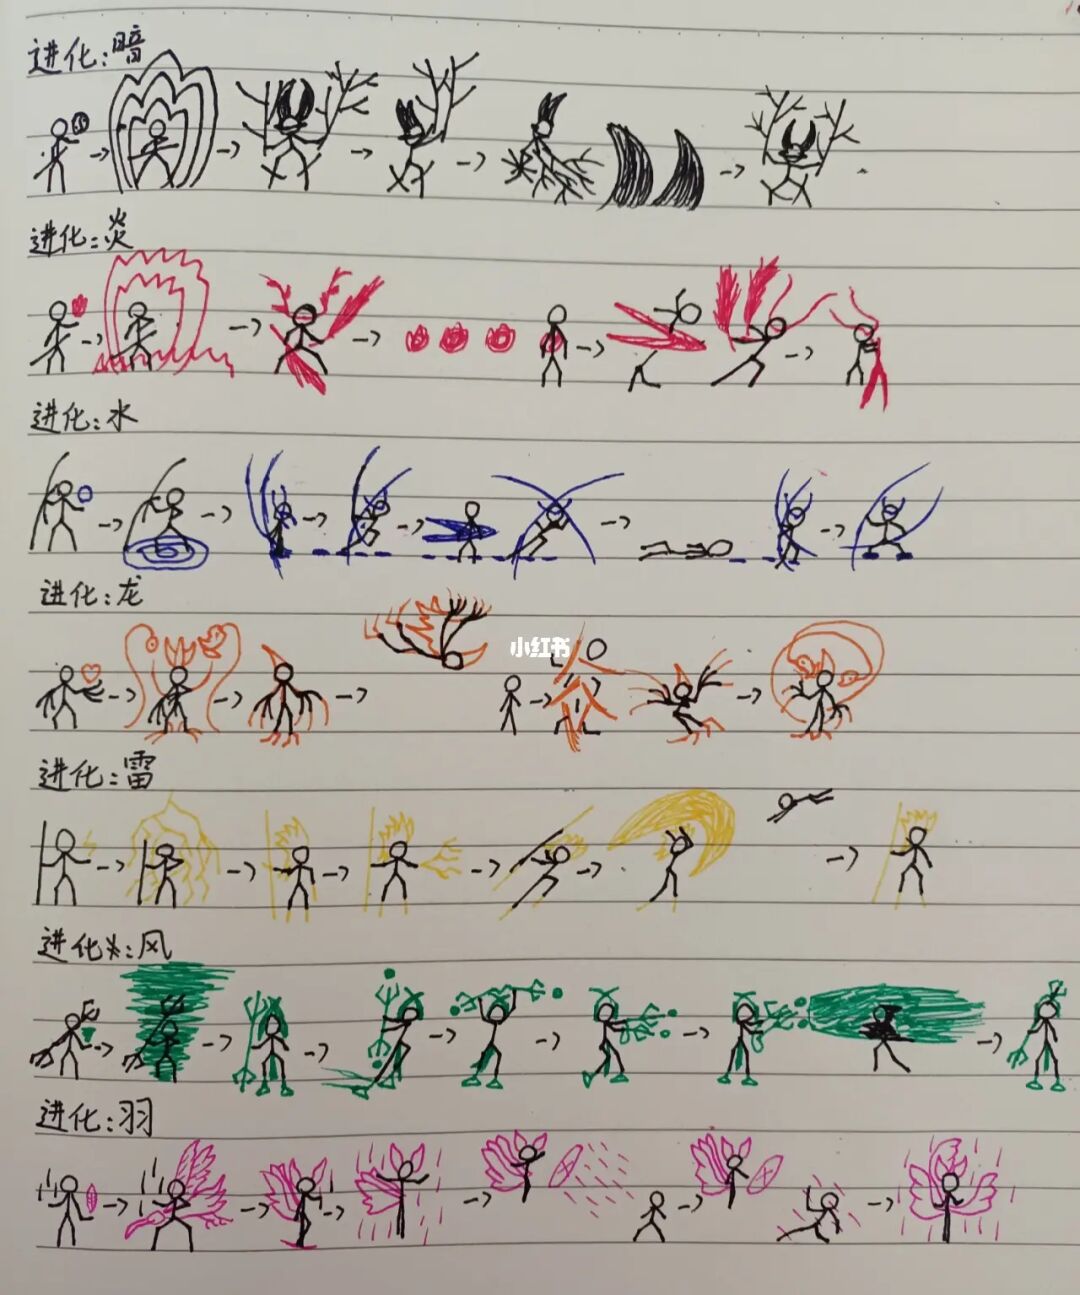 进化:暗
进化:炎
进化:水
进化:龙
小红书
进化:雷
进化:风
进化:羽